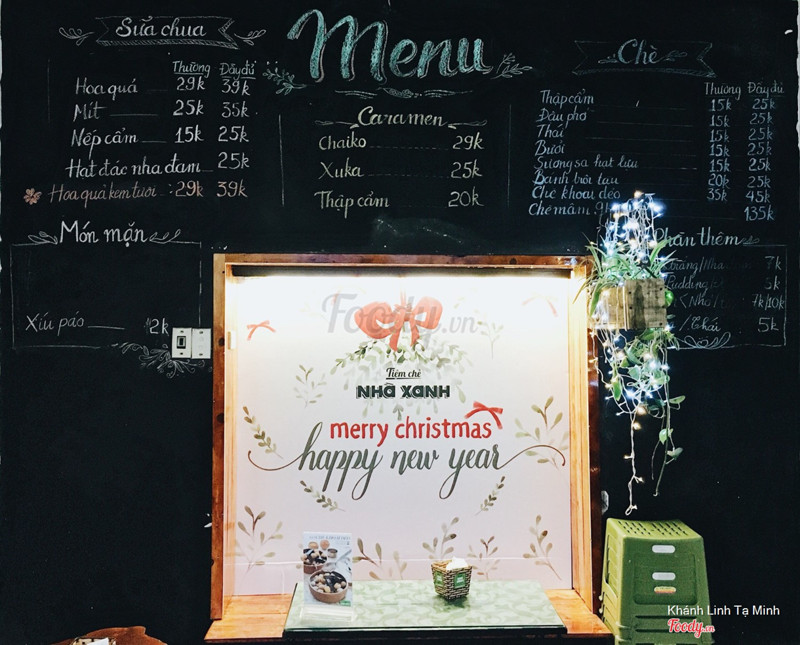 Sữa chua
Thường Đầy đủ
Hoa quả 29k 39k
Mít 25k 35k
Nếp cẩm 15k 25k
Hạt đác nha đam 25k
Hoa quả kem tươi : 29k 39k
Menu
Caramen
Chaiko 29k
Xuka 25k
Thập cẩm 20k
Chè
Thường Đầy đủ
Thập cẩm 15k 25k
Đậu phơ 15k 25k
Thái 15k 25k
Bưởi 15k 25k
Sương sa hạt lựu 15k 25k
Bánh trôi tàu 20k 25k
Chè khoai dẻo 35k 45k
Chè mâm 135k
Món mặn
Xíu páo 12k
Phần thêm
7k
Pudding
7k/10k
/Thái 5k
Foody.vn
Tiệm chè
NHÀ XANH
merry christmas
happy new year
Khánh Linh Tạ Minh
Foody.vn